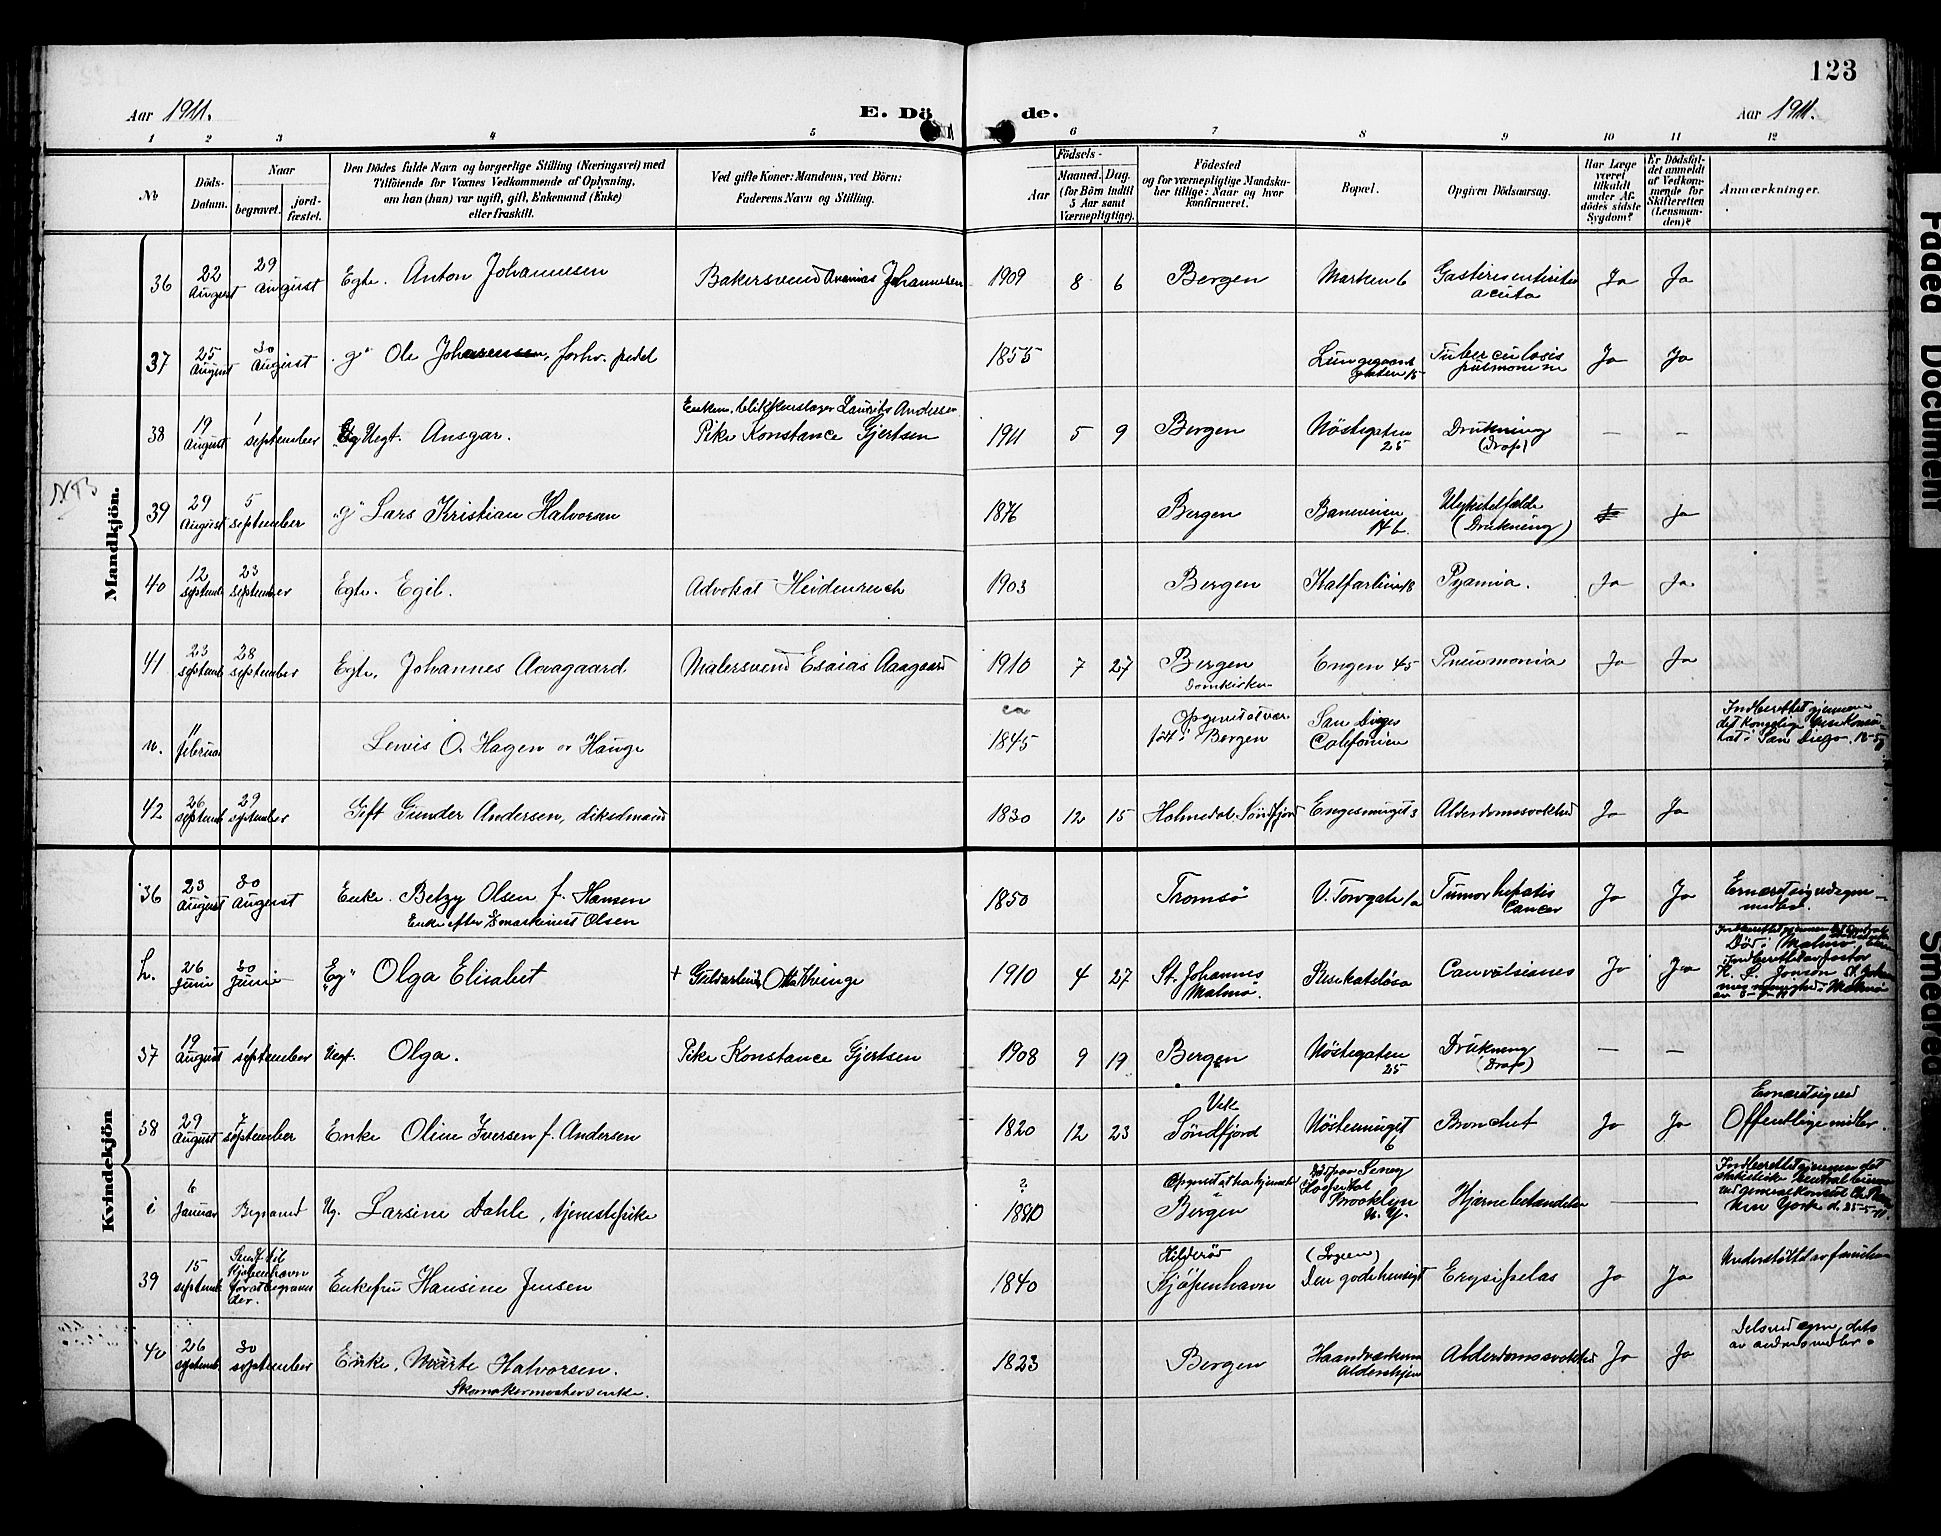 123
Aar 1911.
E. Dö de.
Aar 1911.
1 2 3 4 5 6 7 8 9 10 11 12
No
Döds-Datum.
Naar
begravet.
jord-fæstet.
Den Dödes fulde Navn og borgerlige Stilling (Næringsvei) med
Tilföiende for Voxnes Vedkommende af Oplysning,
om han (hun) var ugift, gift, Enkemand (Enke)
eller fraskilt.
Ved gifte Koner: Mandens, ved Börn:
Faderens Navn og Stilling.
Födsels-
Aar
Maaned. Dag.
(for Börn indtil
5 Aar samt
Værnepligtige).
Födested
og for værnepligtige Mandska-
ber tillige: Naar og hvor
konfirmeret.
Bopæl.
Opgiven Dödsaarsag.
Har Læge
været
tilkaldt
under Af-
dödes sidste
Sygdom?
Er Dödsfal-
det anmeldt
af Vedkom-
mende for
Skifteretten
(Lensman-
den)?
Anmærkninger.
Mandkjön.
36 22 August 29 August Egte. Anton Johannesen Bakersvend Ananias Johannesen 1909 8 6 Bergen Marken 6 Gastroenteritis acuta Ja Ja
37 25 August 30 August g. Ole Johannessen, forhv. pedel 1855 Lungegaards gaten 15 Tuberculosis pulmonum Ja Ja
38 19 August 1 september Uegt. Ansgar. Enkem. blikkenslager Laurits Andersen
Pike Konstance Gjertsen 1911 5 9 Bergen Nöstegaten 25 Drukning (Drap) — —
NB
39 29 August 5 september g. Lars Kristian Halvorsen 1876 Bergen Baneveien 14 b. Ulykkestilfælde (Drukning) ja
40 12 septemb 23 september Egte. Egil. Advokat Heidenreich 1903 Bergen Kalfarlien 18 Pyæmia. Ja Ja
41 23 septemb 28 september Egte. Johannes Aavagaard Malersvend Esaias Aagaard 1910 7 27 Bergen Domkirken Engen 45 Pneumonia Ja Ja
n. 11 februar Lewis O. Hagen or Hauge ca 1845 Opgivet at være född i Bergen San Diego Californien Indberettet gjennem det kongelige Visekonsulat i San Diego.
42 26 septemb 29 september Gift Gunder Andersen, diksdmand 1830 12 15 Holmedal Söndfjord Engesmuget 3 Alderdomssvakhed Ja Ja
Kvindekjön
36 23 August 30 August Enke. Betzy Olsen f. Hansen
Enke efter maskinist Olsen 1850 Tromsö V. Torvgate 1a Tumor hepatis Cancer Ja Ja Ernæret sig ved egne midler.
h. 26 Juni 30 Junie Eg. Olga Elisabet + Guldarbeider Otto Kvinge 1910 4 27 St. Johannes Malmö. Convulsiones Ja Ja Död i Malmö
37 19 August 1 september Uegt. Olga. Pike Konstance Gjertsen 1908 9 19 Bergen Nöstegaten 25 Drukning (Drap) — —
38 29 August 7 september Enke Oline Iversen f. Andersen 1820 12 23 Vik Söndfjord Nöstesmuget 6 Bronchit Ja Ja Ernæret sig ved Offentlige midler.
i 6 Januar Begraved Ug. Larsine Dahle, tjenestepike ? 1880 Opgivet at ha hjemsted Bergen Död paa Seney Hospital Brooklyn N. Y. Hjernebetændelse — — Indberettet gjennem det statistiske Centralbureau ved generalkonsul New York d. 25-5-11.
39 15 septemb Sendt til Kjöbenhavn for at begraves der. Enkefru Hansine Jensen 1840 Hilderöd Kjöpenhavn (Logen) Den gode hensigt Erysipelas Ja Ja Understöttet av familien
40 26 septemb 30 september Enke, Marte Halvorsen.
Skomakermesters enke. 1823 Bergen Haandværkernes Aldershjem Alderdomssvakhed Ja Ja Dels ved egne, dels av andres midler.
Faded Document
Smeared